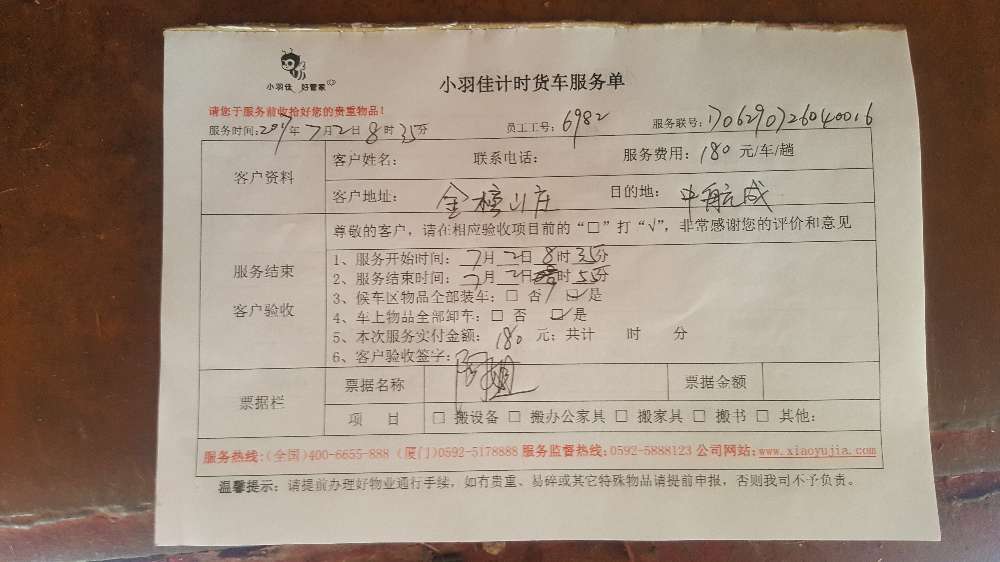 小羽佳 好管家
小羽佳计时货车服务单
请您于服务前收拾好您的贵重物品!
服务时间:2017年7月2日8时35分 员工工号:6982 服务联号:170629072604 0016
客户资料
客户姓名: 联系电话: 服务费用:180元/车/趟
客户地址:金榜山庄 目的地:中航城
尊敬的客户,请在相应验收项目前的“□”打“√”,非常感谢您的评价和意见
服务结束
客户验收
1、服务开始时间:7月2日8时35分
2、服务结束时间:7月2日 时55分
3、候车区物品全部装车:□ 否 ☑是
4、车上物品全部卸车:□ 否 ☑是
5、本次服务实付金额:180元;共计 时 分
6、客户验收签字:
票据栏
票据名称 票据金额
项 目 □ 搬设备 □ 搬办公家具 □ 搬家具 □ 搬书 □ 其他:
服务热线:(全国)400-6655-888 (厦门)0592-5178888 服务监督热线:0592-5888123 公司网站:www.xiaoyujia.com
温馨提示:请提前办理好物业通行手续,如有贵重、易碎或其它特殊物品请提前申报,否则我司不予负责。